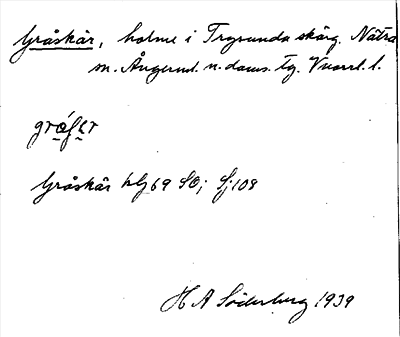 Gråskär, holme i Trysunda skärg. Nätra
sn. Ångerml. n. doms. tg. Vnorrl. l.
Gråskär bl 69 SO; Sj 108
H A Söderberg 1939